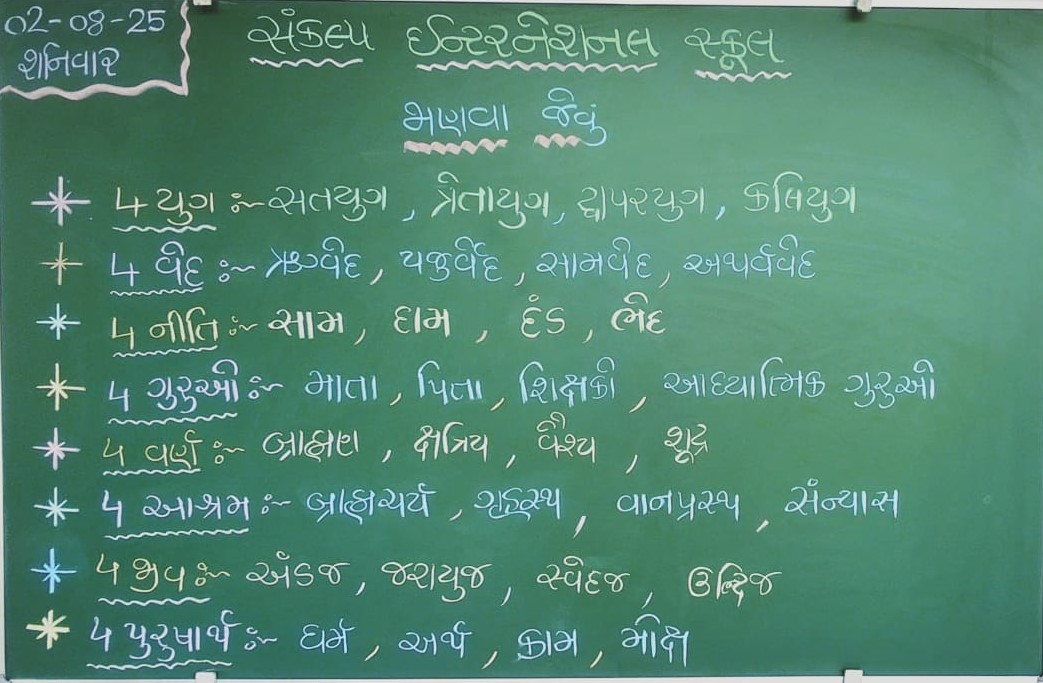 02-08-25
શનિવાર
સંકલ્પ ઈન્ટરનેશનલ સ્કૂલ
ભણવા જેવું
* 4 યુગ :~ સતયુગ , ત્રેતાયુગ , દ્વાપરયુગ , કલિયુગ
* 4 વેદ :~ ઋગ્વેદ , યજુર્વેદ , સામવેદ , અથર્વવેદ
* 4 નીતિ :~ સામ , દામ , દંડ , ભેદ
* 4 ગુરુઓ :~ માતા , પિતા , શિક્ષકો , આધ્યાત્મિક ગુરુઓ
* 4 વર્ણ :~ બ્રાહ્મણ , ક્ષત્રિય , વૈશ્ય , શૂદ્ર
* 4 આશ્રમ :~ બ્રાહ્મચર્ય , ગૃહસ્થ , વાનપ્રસ્થ , સંન્યાસ
* 4 જીવ :~ અંડજ , જરાયુજ , સ્વેદજ , ઉદ્ભિજ
* 4 પુરુષાર્થ :~ ધર્મ , અર્થ , કામ , મોક્ષ